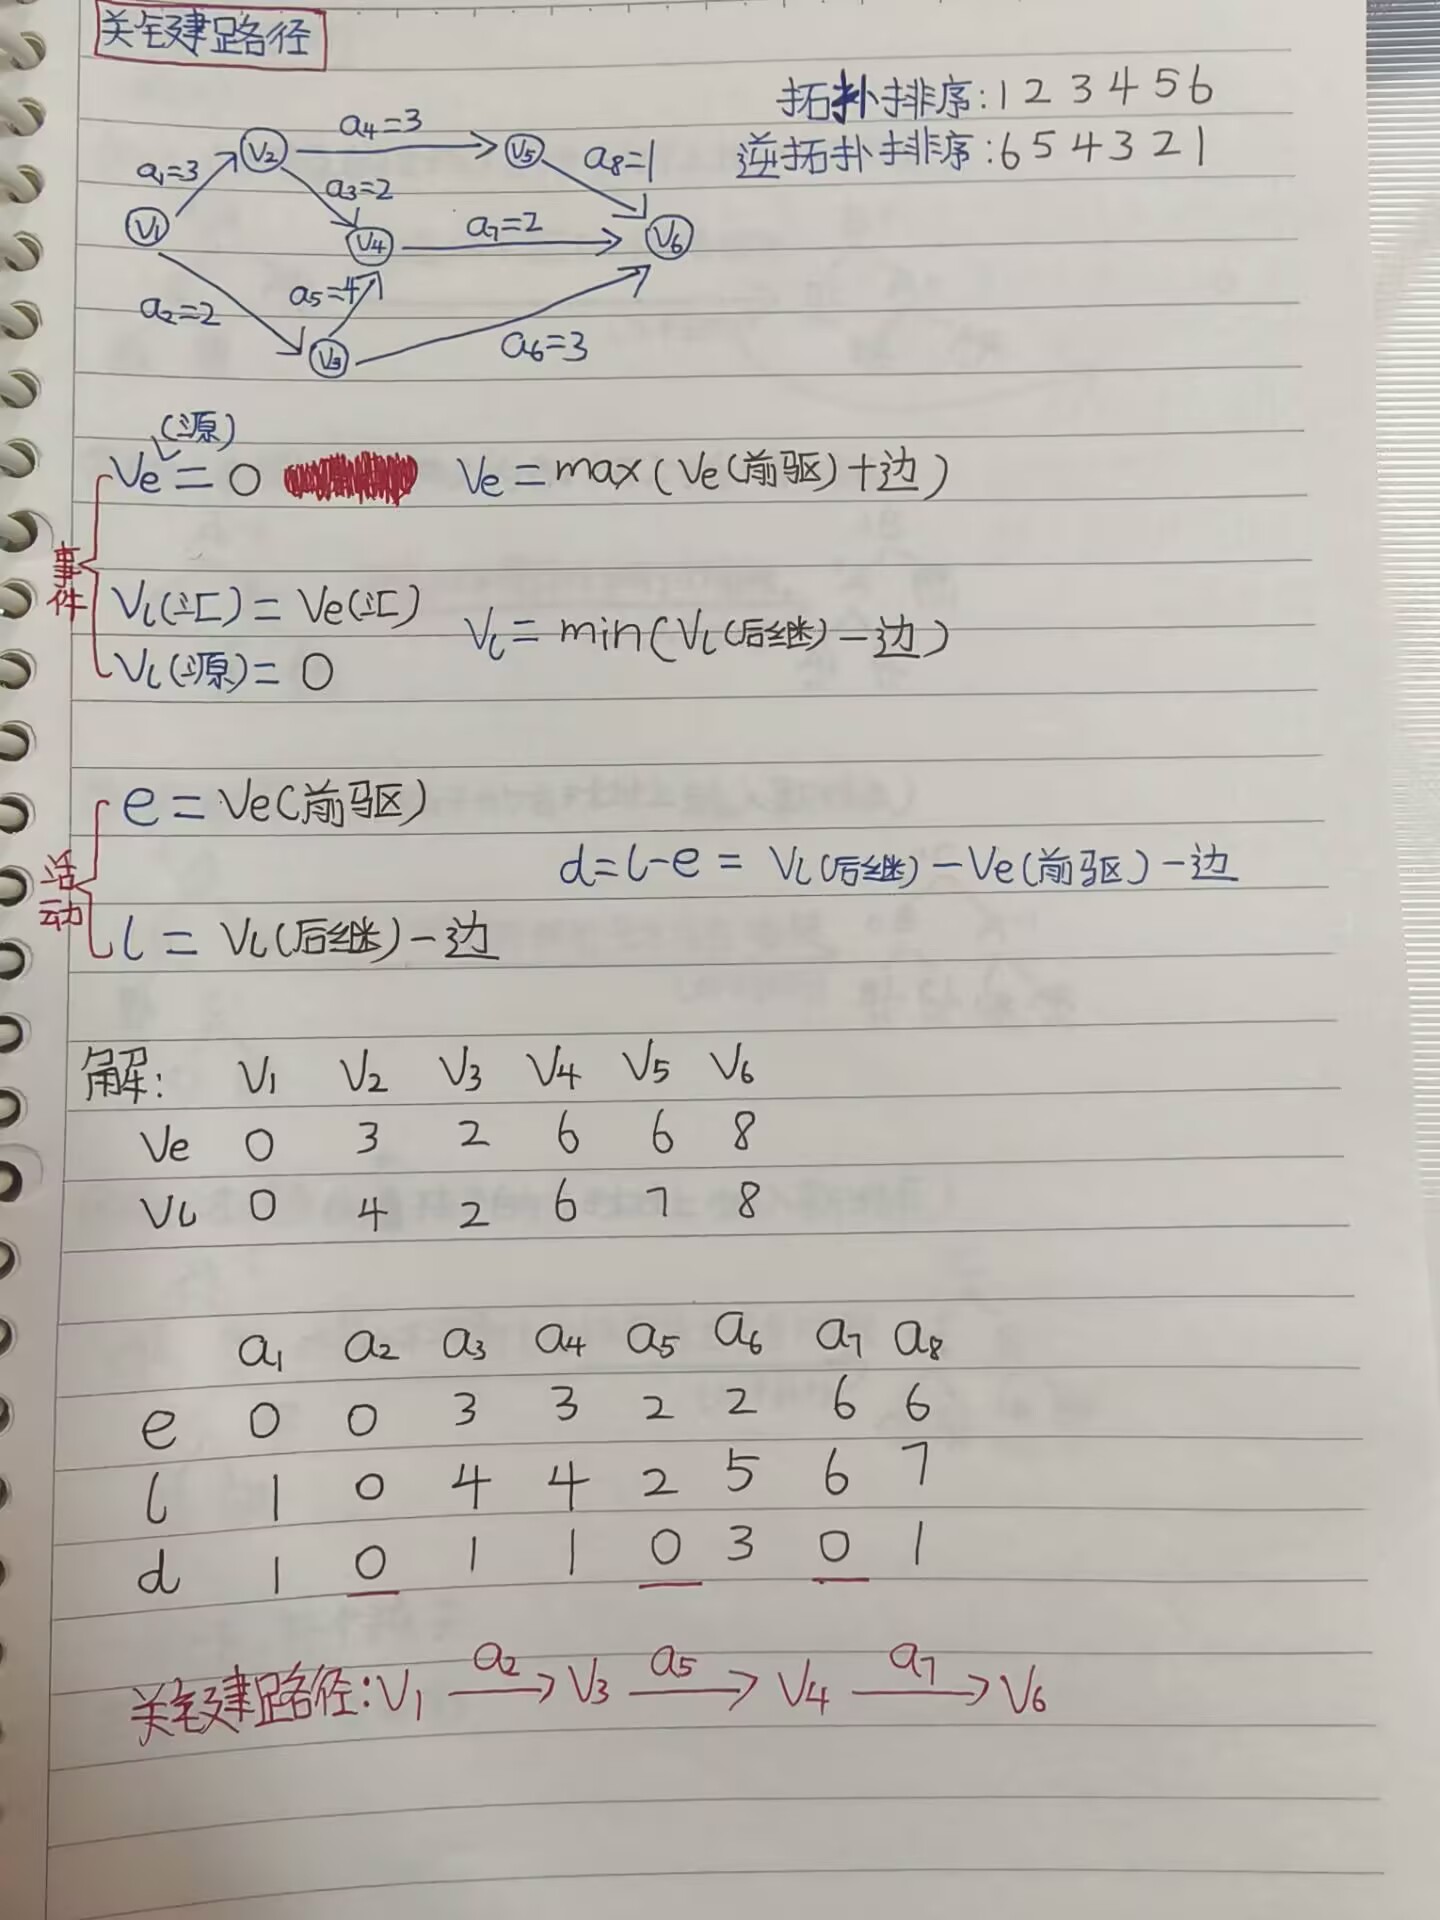 关键路径
拓扑排序:1 2 3 4 5 6
逆拓扑排序:6 5 4 3 2 1
a₁=3
V₂
a₄=3
V₅
a₈=1
a₃=2
V₁
V₄
a₇=2
V₆
a₂=2
a₅=4
V₃
a₆=3
事件
Ve(源)=0 Ve=max(Ve(前驱)+边)
Vl(汇)=Ve(汇) Vl=min(Vl(后继)-边)
Vl(源)=0
活动
e=Ve(前驱)
d=l-e=Vl(后继)-Ve(前驱)-边
l=Vl(后继)-边
解: V₁ V₂ V₃ V₄ V₅ V₆
Ve 0 3 2 6 6 8
Vl 0 4 2 6 7 8
a₁ a₂ a₃ a₄ a₅ a₆ a₇ a₈
e 0 0 3 3 2 2 6 6
l 1 0 4 4 2 5 6 7
d 1 0 1 1 0 3 0 1
关键路径:V₁ a₂→ V₃ a₅→ V₄ a₇→ V₆